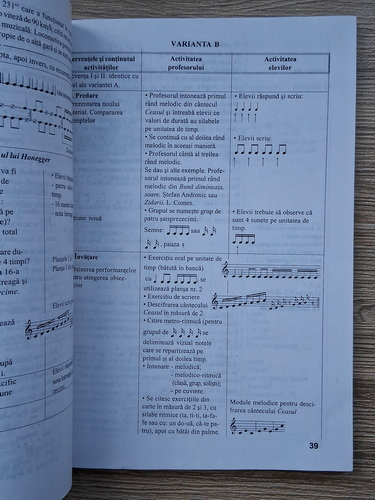 231" care a funcționat
o viteză de 90 km/h,
muzicală: Locomotiva
ropie de o altă gară
ota, apoi invers, cu
ul lui Honegger
va fi
de
ce:
pe
e)?
total
are du-
4 timpi?
a 16-a
treagă și
rcime.
ează
upă
i.
cific
une
VARIANTA B
Secvențele și conținutul
activităților
Activitatea
profesorului
Activitatea
elevilor
vența I și II: identice cu
ale variantei A.
Predare
rezentarea noului
terial. Compararea
emplelor
• Profesorul intonează primul
rând melodic din cântecul
Ceasul și întreabă elevii ce
valori de durată au silabele
pe unitatea de timp.
• Se continuă cu al doilea rând
melodic în aceeași manieră.
• Profesorul cântă al treilea
rând melodic.
Se dau și alte exemple. Profe-
sorul intonează primul rând
melodic din Bună dimineața,
soare, Ștefan Andronic sau
Zidarii, L. Comes.
• Grupul se numește grup de
patru șaisprezecimi.
Semne: sau
, pauza
• Elevii răspund și scriu:
• Elevii scriu:
• Elevii trebuie să observe că
sunt 4 sunete pe unitatea de
timp.
țiune nouă
Învățare
ținerea performanțelor
ru atingerea obiec-
lor
• Exercițiu oral pe unitate de
timp (bătută în bancă)
cu , se
utilizează planșa nr. 2
• Exercițiu de scriere
• Descifrarea cântecului
Ceasul în măsura de 2
• Citire metro-ritmică (pentru
grupul de se
delimitează vizual notele
care se repartizează pe
primul și al doilea timp.
• Intonare - melodică;
- melodico-ritmică
(clasă, grup, soliști);
- pe cuvinte.
• Se citesc exercițiile din
carte în măsura de 2 și 3, cu
silabe ritmice (ta, ti-ti, ta-fa-
te sau cu: un do-uă, că-te pa-
tru), apoi cu bătăi din palme.
Module melodice pentru desci-
frarea cântecului Ceasul
39